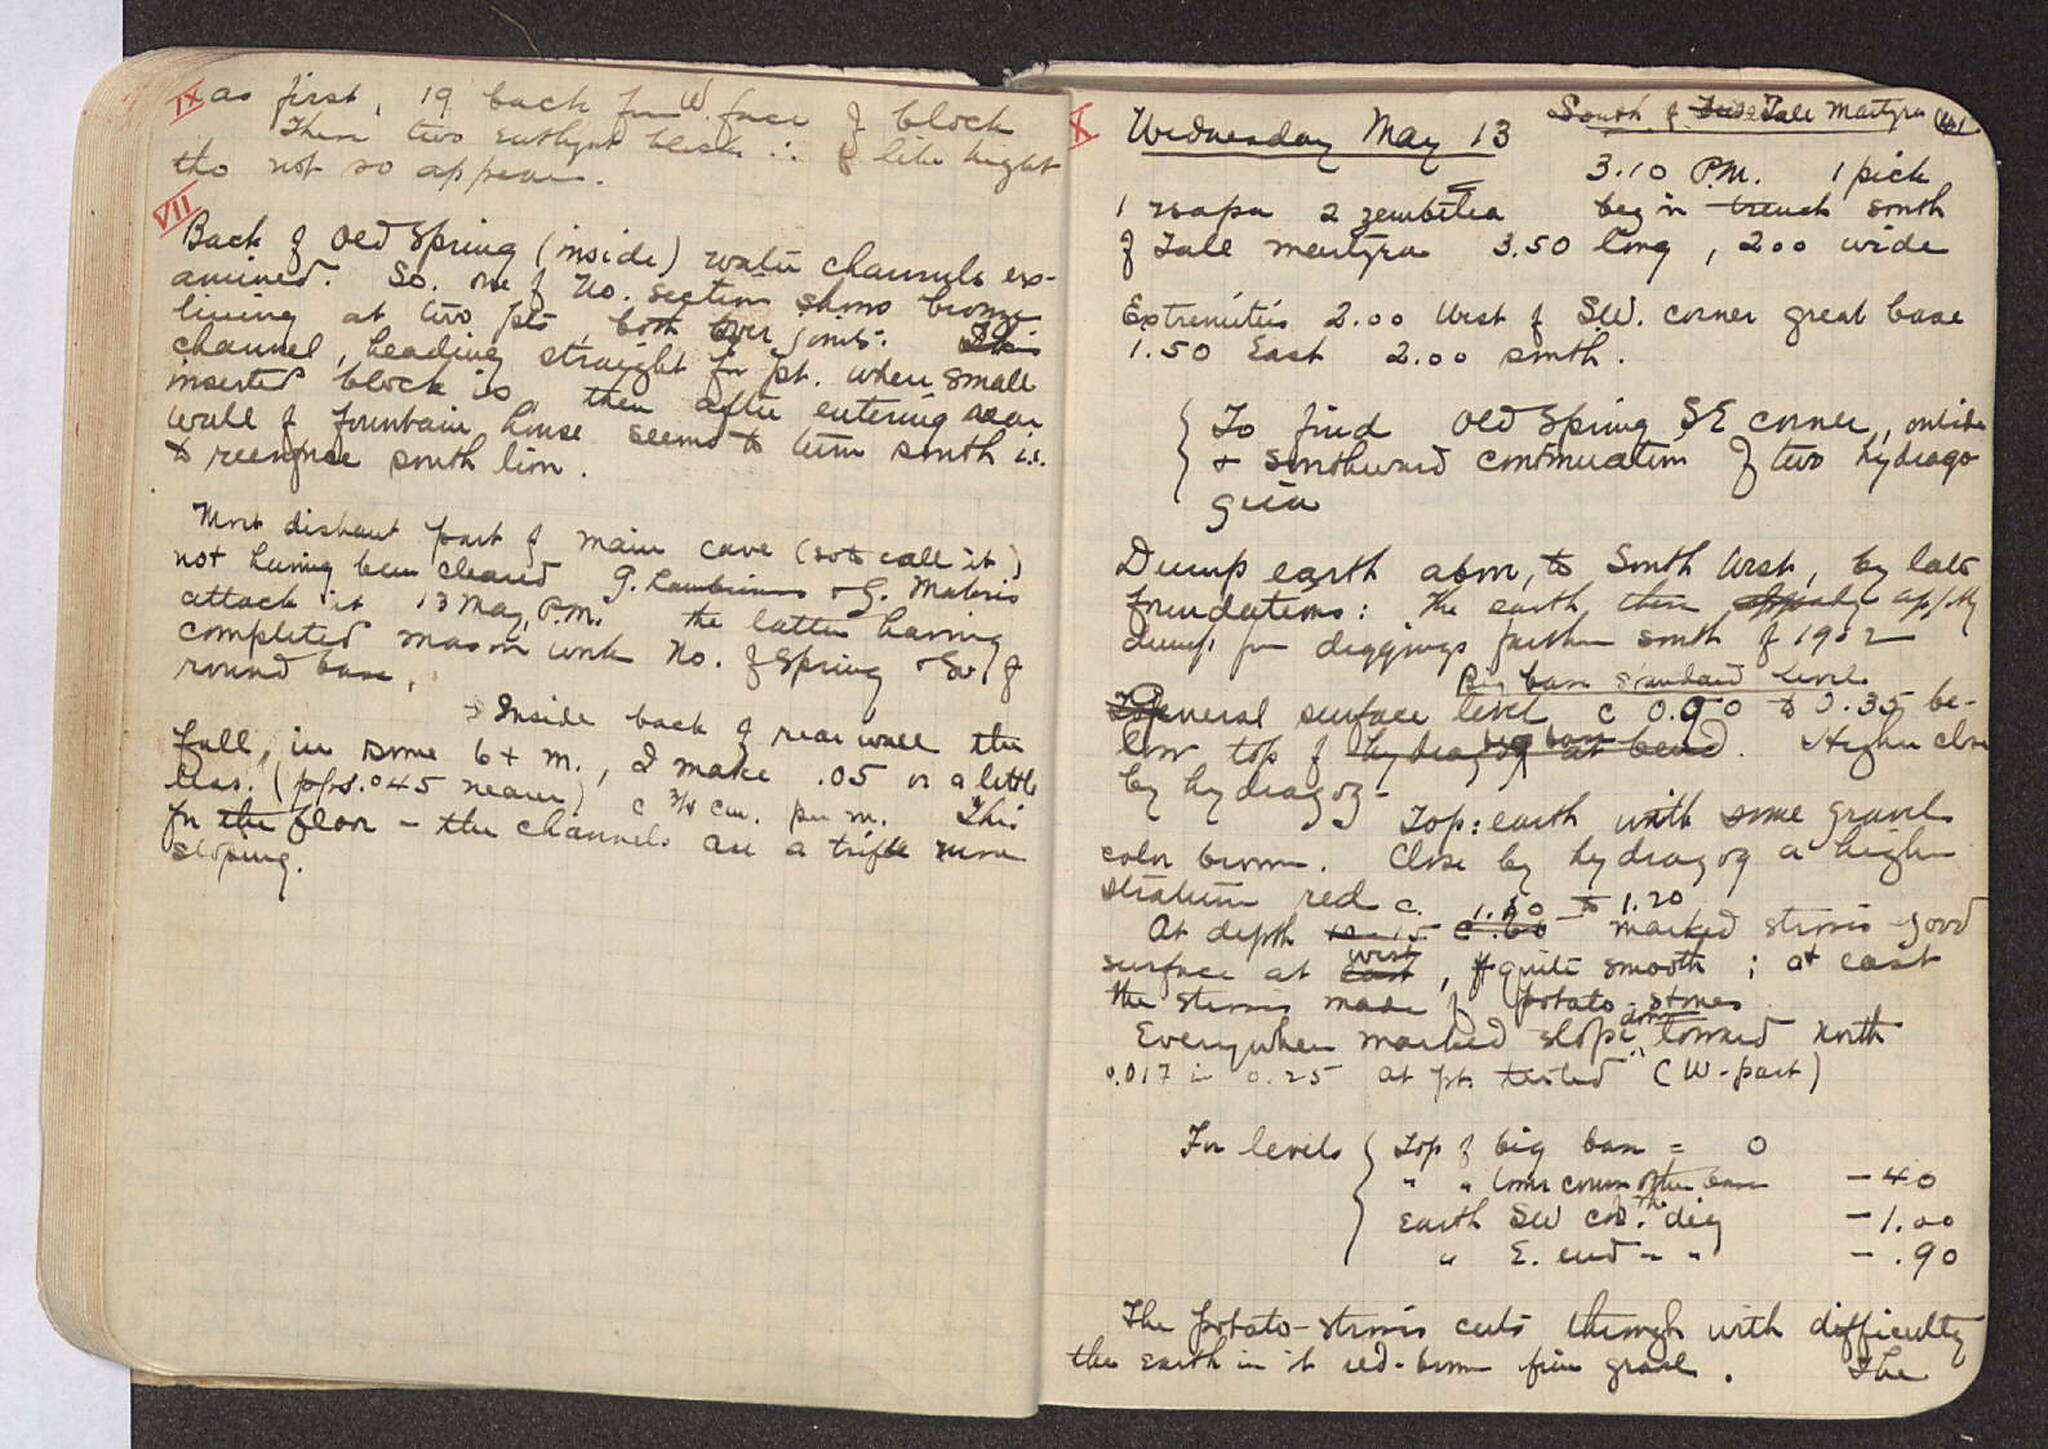 IX as first, 19 back from W. face of block
These two euthynt blocks ∴ of like height
tho not so appear.
VII
Back of Old Spring (inside) water channels ex-
amined. So. one of No. section shows bronze
lining at two pts, both over joints. This
channel, heading straight for pt. where small
inserted block is, then after entering rear
wall of fountain house seems to turn south i.e.
to reenforce south lion.
Most distant part of main cave (so to call it)
not having been cleared G. Lambrinos & G. Makris
attack it 13 May, P.M. the latter having
completed mason work No. of Spring & So. of
round base.
Inside back of rear wall the
fall, in some 6+ m., I make .05 or a little
less. (pps .045 nearer) c 3/4 cm. per m. This
for the floor - the channels are a trifle more
sloping.
X Wednesday May 13 South of Tall Martyra
3.10 P.M. 1 pick
1 tsapa 2 zembilia begin trench south
of Tall martyra 3.50 long, 2.00 wide
Extremities 2.00 West of S.W. corner great base
1.50 East 2.00 south.
To find Old Spring SE corner, outside
& southward continuation of two hydrago
geia
Dump earth above, to South West, by late
foundations: The earth there app'tly
dump from diggings further south of 1902
Big base standard level
General surface level c 0.90 to 0.35 be-
low top of hydragog at bend. Higher close
big base
by hydragog-
Top: earth with some gravel
color brown. Close by hydragog a higher
stratum red c. 1.10 to 1.20
At depth 10-15 c .60 marked stosis good
surface at east west, quite smooth; at east
the stosis made of potato-stones
Everywhere marked slope down toward north
0.017 in 0.25 at pt. tested (W-part)
For levels Top of big base = 0
" " lower course of the base - 40
Earth SW cor. of this dig - 1.00
" E. end " " - .90
The potato-stosis cuts through with difficulty
the earth in it red-brown fine gravel. The